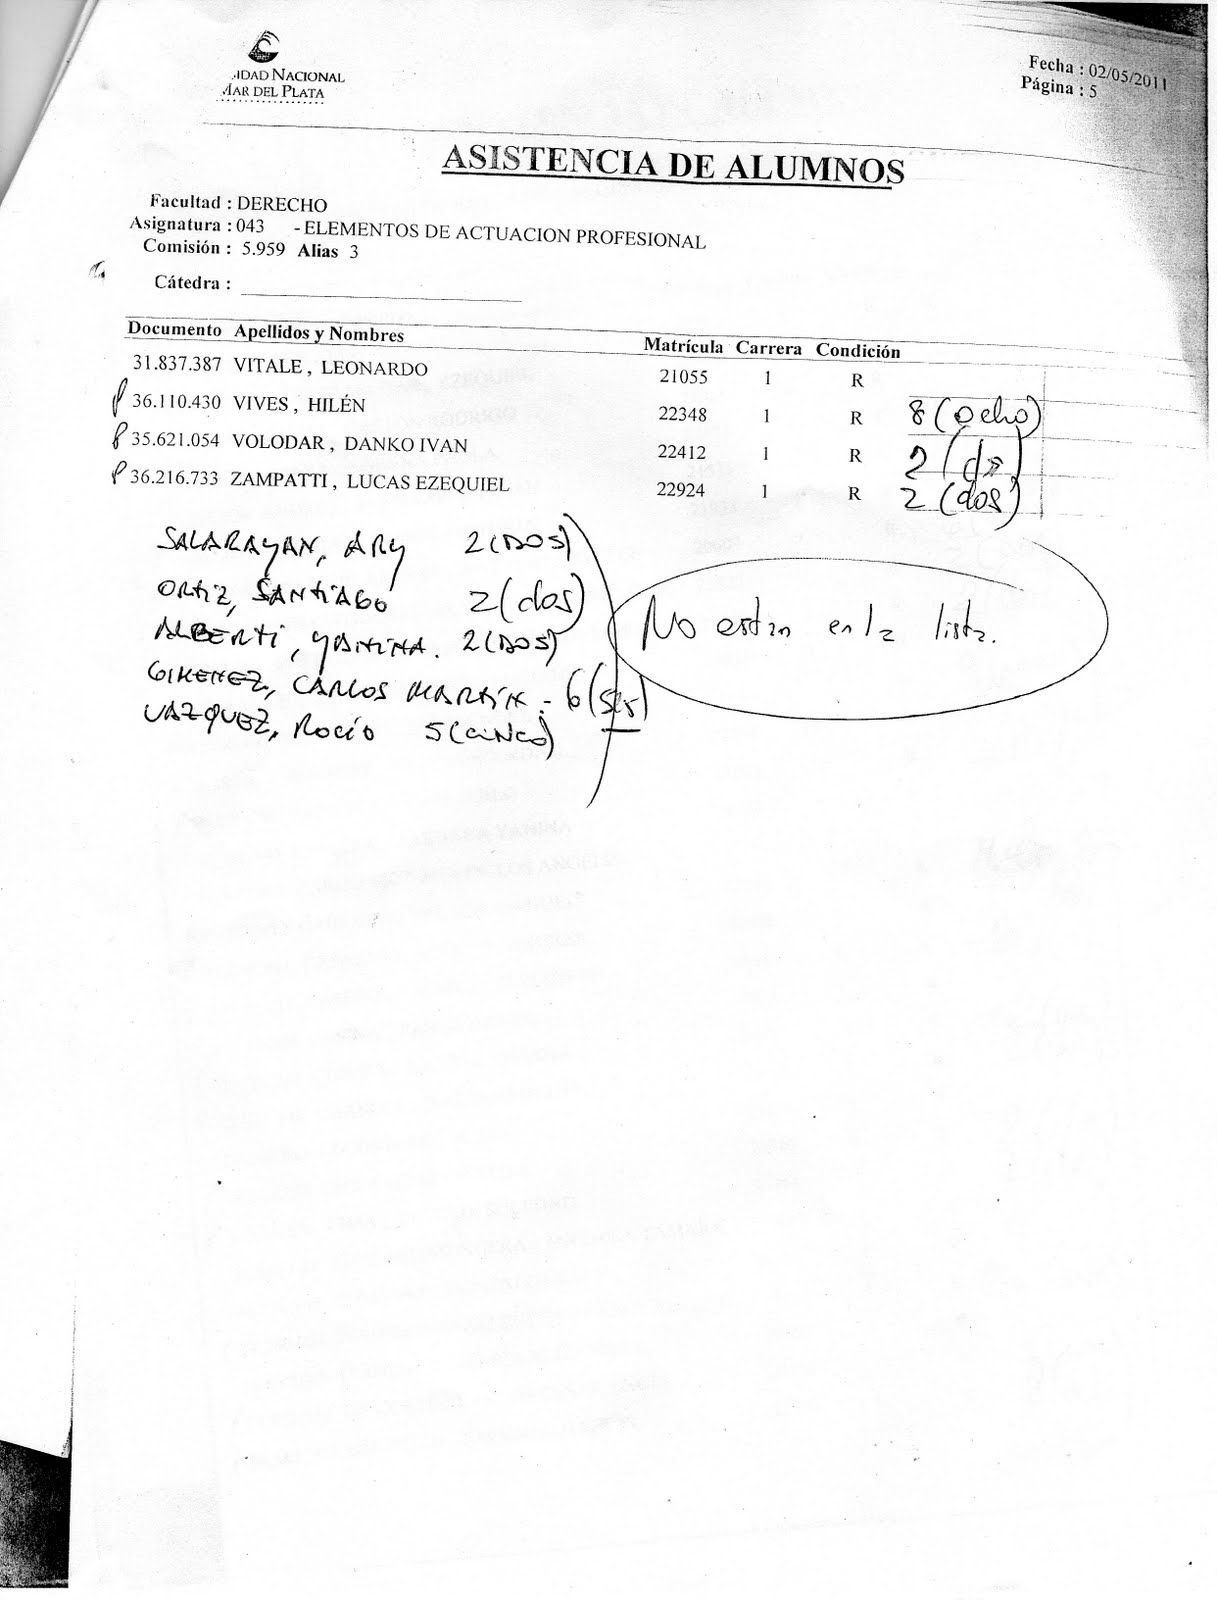 IDAD NACIONAL
MAR DEL PLATA
Fecha : 02/05/2011
Página : 5
ASISTENCIA DE ALUMNOS
Facultad : DERECHO
Asignatura : 043 - ELEMENTOS DE ACTUACION PROFESIONAL
Comisión : 5.959 Alias 3
Cátedra :
Documento Apellidos y Nombres Matrícula Carrera Condición
31.837.387 VITALE , LEONARDO 21055 1 R
36.110.430 VIVES , HILÉN 22348 1 R 8 (ocho)
35.621.054 VOLODAR , DANKO IVAN 22412 1 R 2 (dos)
36.216.733 ZAMPATTI , LUCAS EZEQUIEL 22924 1 R 2 (dos)
SALARAYAN, ARY 2 (DOS)
ORTIZ, SANTIAGO 2 (dos)
ALBERTI, YANINA. 2 (DOS)
GIMENEZ, CARLOS MARTIN - 6 (seis)
VAZQUEZ, ROCÍO 5 (CINCO)
No están en la lista.